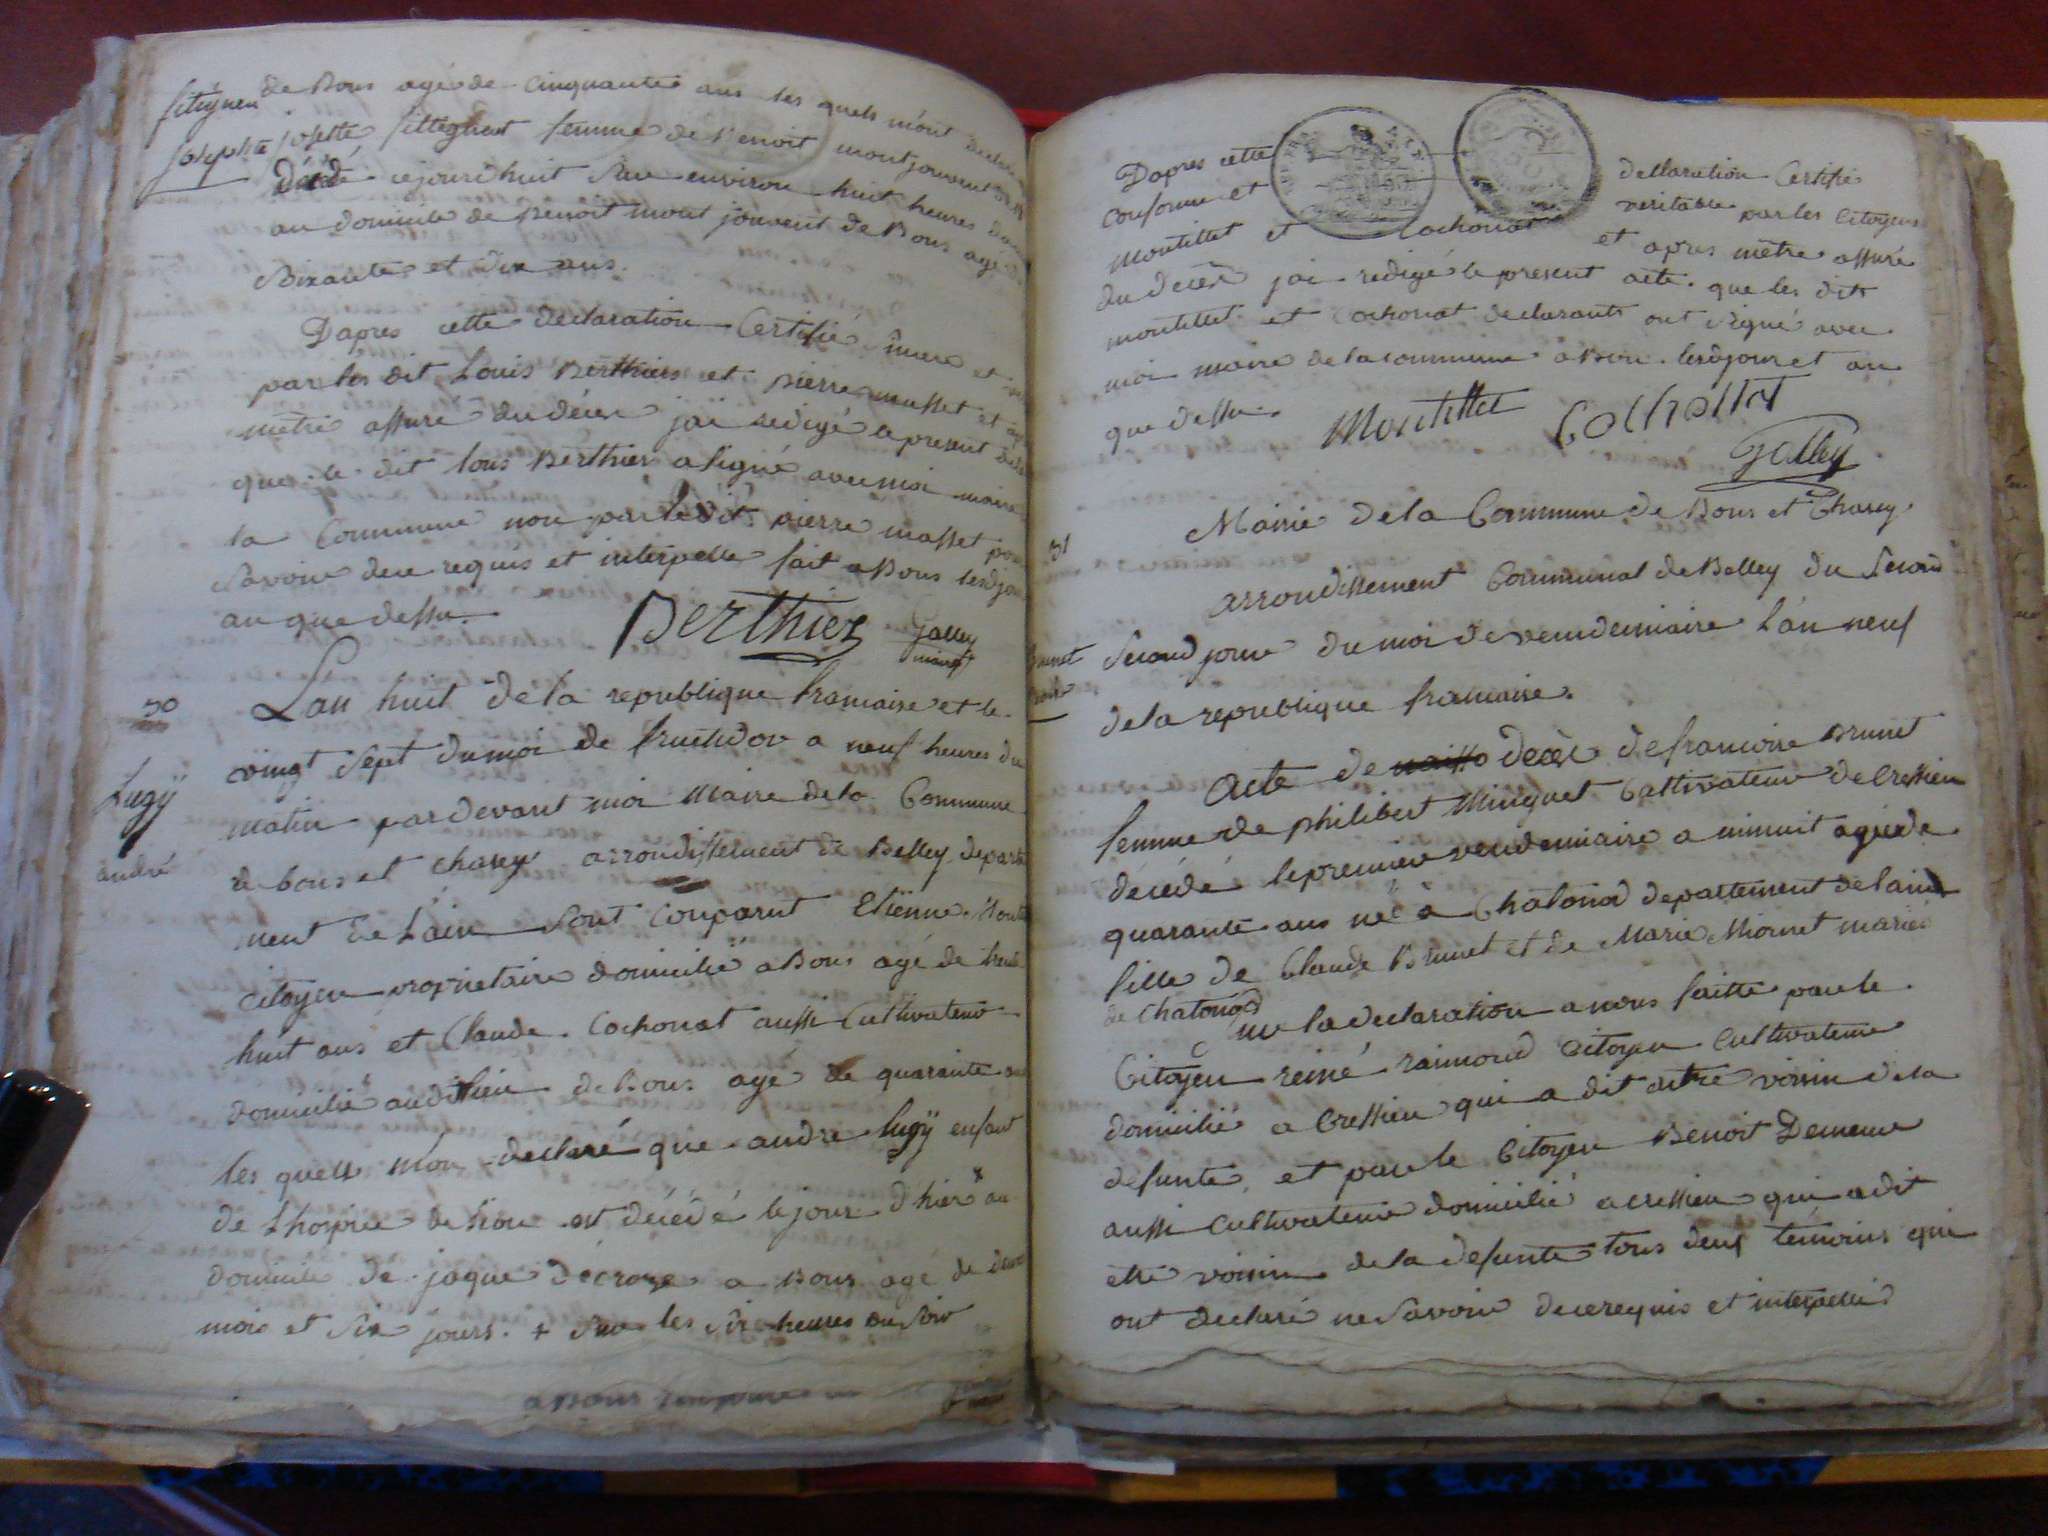 de Bons agé de cinquante ans les quels mont declaré
josette fillegnent femme de Benoit montjouvent de B
Décédé cejourdhuit sur environ huit heures dans
au domicile de Benoit mont jouvent de Bons agé de
soixante et dix ans.
Dapres cette declaration Certifié sincere et
par les dit Louis Berthiers et pierre masset et
metre assuré du décès jai redigé le present acte
que le dit louis Berthier a signé avec moi maire
la Commune non par le dit pierre masset pour
savoir de ce requis et interpelle fait a Bons les djour
an que dessu.
Berthier Galley maire
50
Lan huit de la republique francaise et le
Lugÿ
andré
vingt sept du moi de fructidor a neuf heures du
matin par devant moi Maire de la Commune
de bons et chasey arrondissement de Belley departe
ment de Lain sont comparut Etienne Mont
citoyen proprietaire domicilié a Bons agé de trente
huit ans et Claude Cochonat aussi Cultivateur
domicilié audit lieu de Bons agé de quarante an
les quels mon declaré que andre lugÿ enfant
de Lhospice de lion est décédé le jour d'hier + au
domicile de jaque décroze a Bons agé de deux
mois et six jours. + sur les six heures du soir
Dapres cette declaration Certifié
conforme et veritable par les Citoyens
montillet et Cochonat et apres metre assuré
du décès jai redigé le present acte que les dits
montillet et Cochonat declarants ont signé avec
moi maire de la commune a Bon les djour et an
que dessu.
Montillet Cochonat
Galley
51
Mairie de la Commune de Bons et Chasey
arrondissement Communal de Belley du second
Brunet
second jour du moi de vendemiaire L'an neuf
de la republique francaise.
Acte de naisso decès de francoise Brunet
femme de philibert Minguet Cultivateur de Cressieu
décédé le premier vendemiaire a minuit agée de
quarante ans né à Chatonod departement de lain
fille de Claude Brunet et de Marie Miornet mariés
de Chatonod
sur la declaration a nous faitte par le
Citoyen reiné raimond citoyen Cultivateur
domicilié a Cressieu qui a dit aitre voisin de la
defunte, et par le Citoyen Benoit Demeure
aussi Cultivateur domicilié a cressieu qui a dit
etre voisin de la defunte tous deux témoins qui
ont declaré ne savoir de ce requis et interpellé